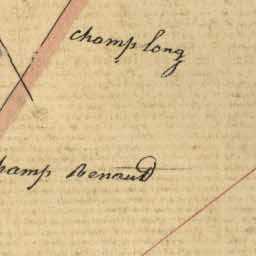 champ long
hamp Renaud